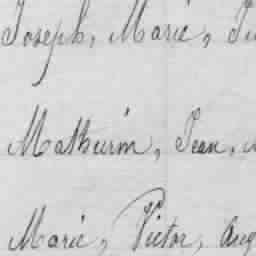 Joseph, Marie,
Mathurin, Jean,
Marie, Victor, Aug